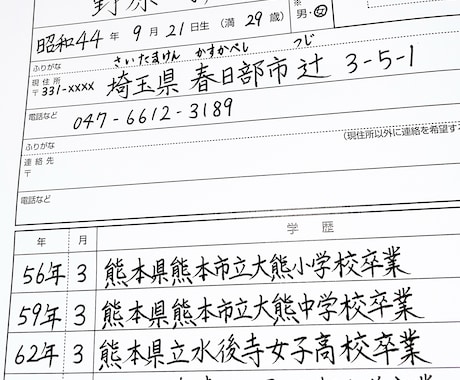 野原
※
昭和44年9月21日生(満29歳) 男・女
ふりがな さいたまけん かすかべし つじ
現住所
〒331-xxxx 埼玉県春日部市辻3-5-1
電話など 047-6612-3189
ふりがな (現住所以外に連絡を希望する
連絡先
〒
電話など
年 月 学 歴
56年 3 熊本県熊本市立大熊小学校卒業
59年 3 熊本県熊本市立大熊中学校卒業
62年 3 熊本県立水後寺女子高校卒業